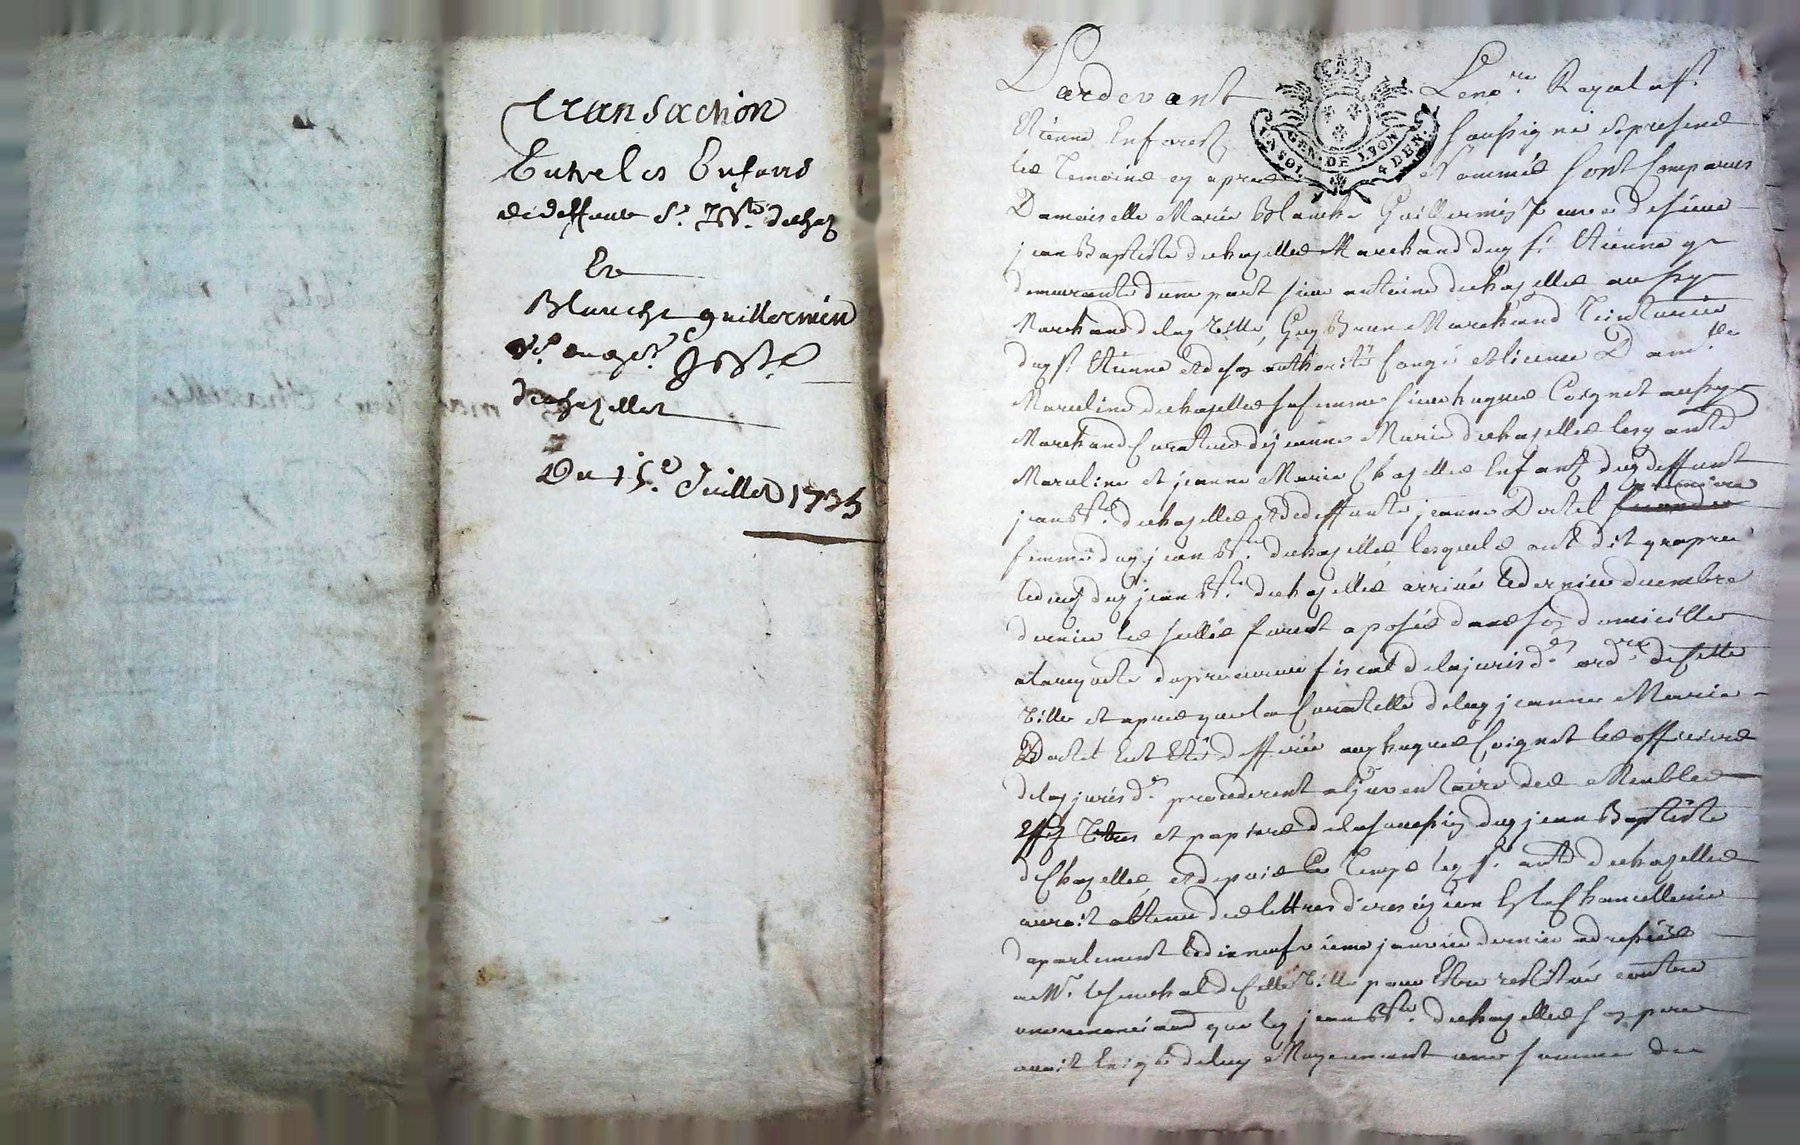 transaction
Entre les Enfans
de deffunt Sr. J Bte. dechaz
Et
Blanche guillermin
Ve. du Sr. J Bte.
dechazelles
Du 15e. Juillet 1735
Pardevant Le no.re Royal a St.
GEN. DE LYON
4 DEN.
Etienne En forest soussigné et presence
les temoins cy apres nommés sont comparus
Damoiselle Marie Blanche Guillermin veuve de sieur
jean Baptiste dechazelles Marchand dud St. Etienne y
demeurante dune part sieur antoine dechazelles aussy
Marchand de lad ville, Guy Brun Marchand Teinturier
dud St. Etienne et de son authorité Dam.lle
Marceline dechazelles sa femme sieur hugues Coignet aussy
Marchand Curateur de jeanne Marie dechazelles lesd ants
Marceline et jeanne Marie Chazelles Enfants dud deffunt
jean Bte. dechazelles et de deffunte jeanne Doctel premiere
femme dud jean Bte. dechazelles, lesquels ont dit qu'apres
led deces dud jean Bte. dechazelles arrivé le dernier decembre
dernier les sellés furent aposés dans son domicille
a la requete du procureur fiscal de la jurisd.on ord.re de cette
ville et apres que la Curatelle de lad jeanne Marie
Eut Eté defferée aud hugues Coignet les officiers
de lad jurisd.on procederent a l'inventaire des Meubles
Effets Titres et papiers de la succession dud jean Baptiste
deChazelles, et depuis ce Temps led Sr. ant. dechazelles
auroit obtenu des lettres de rescision En la Chancellerie
du parlement le dixneufvieme janvier dernier adressées
a Mr. le senechal de cette ville pour Etre restitué contre
une renonciation que led jean Bte. dechazelles son pere
avoit Exigé de luy Moyennant une somme de